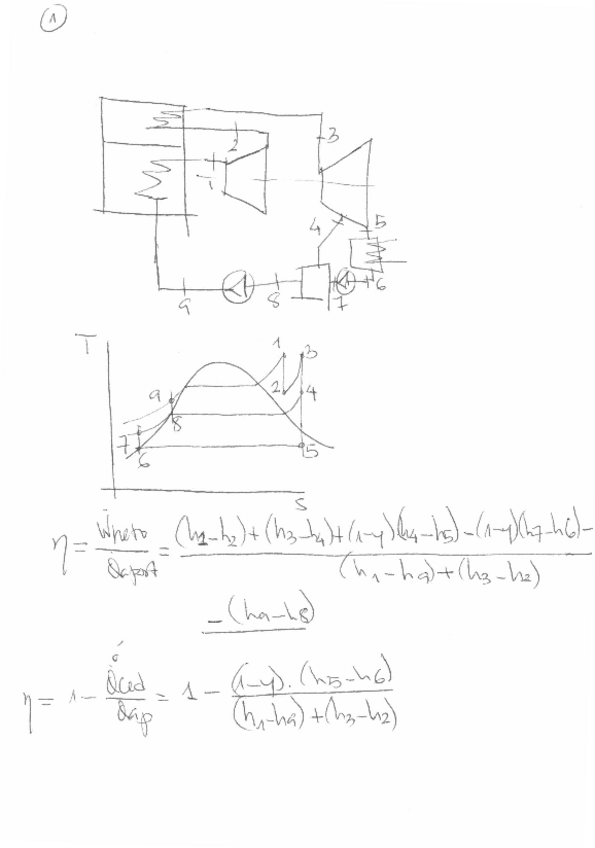 1
2
3
1
4
5
6
7
8
9
T
1
3
9
2
4
7
8
6
5
S
η = Ẇneto / Q̇aport = (h1-h2)+(h3-h4)+(1-y)(h4-h5)-(1-y)(h7-h6)- / (h1-h9)+(h3-h2)
-(h9-h8)
ó
η = 1 - Q̇ced / Q̇ap = 1 - (1-y).(h5-h6) / (h1-h9)+(h3-h2)